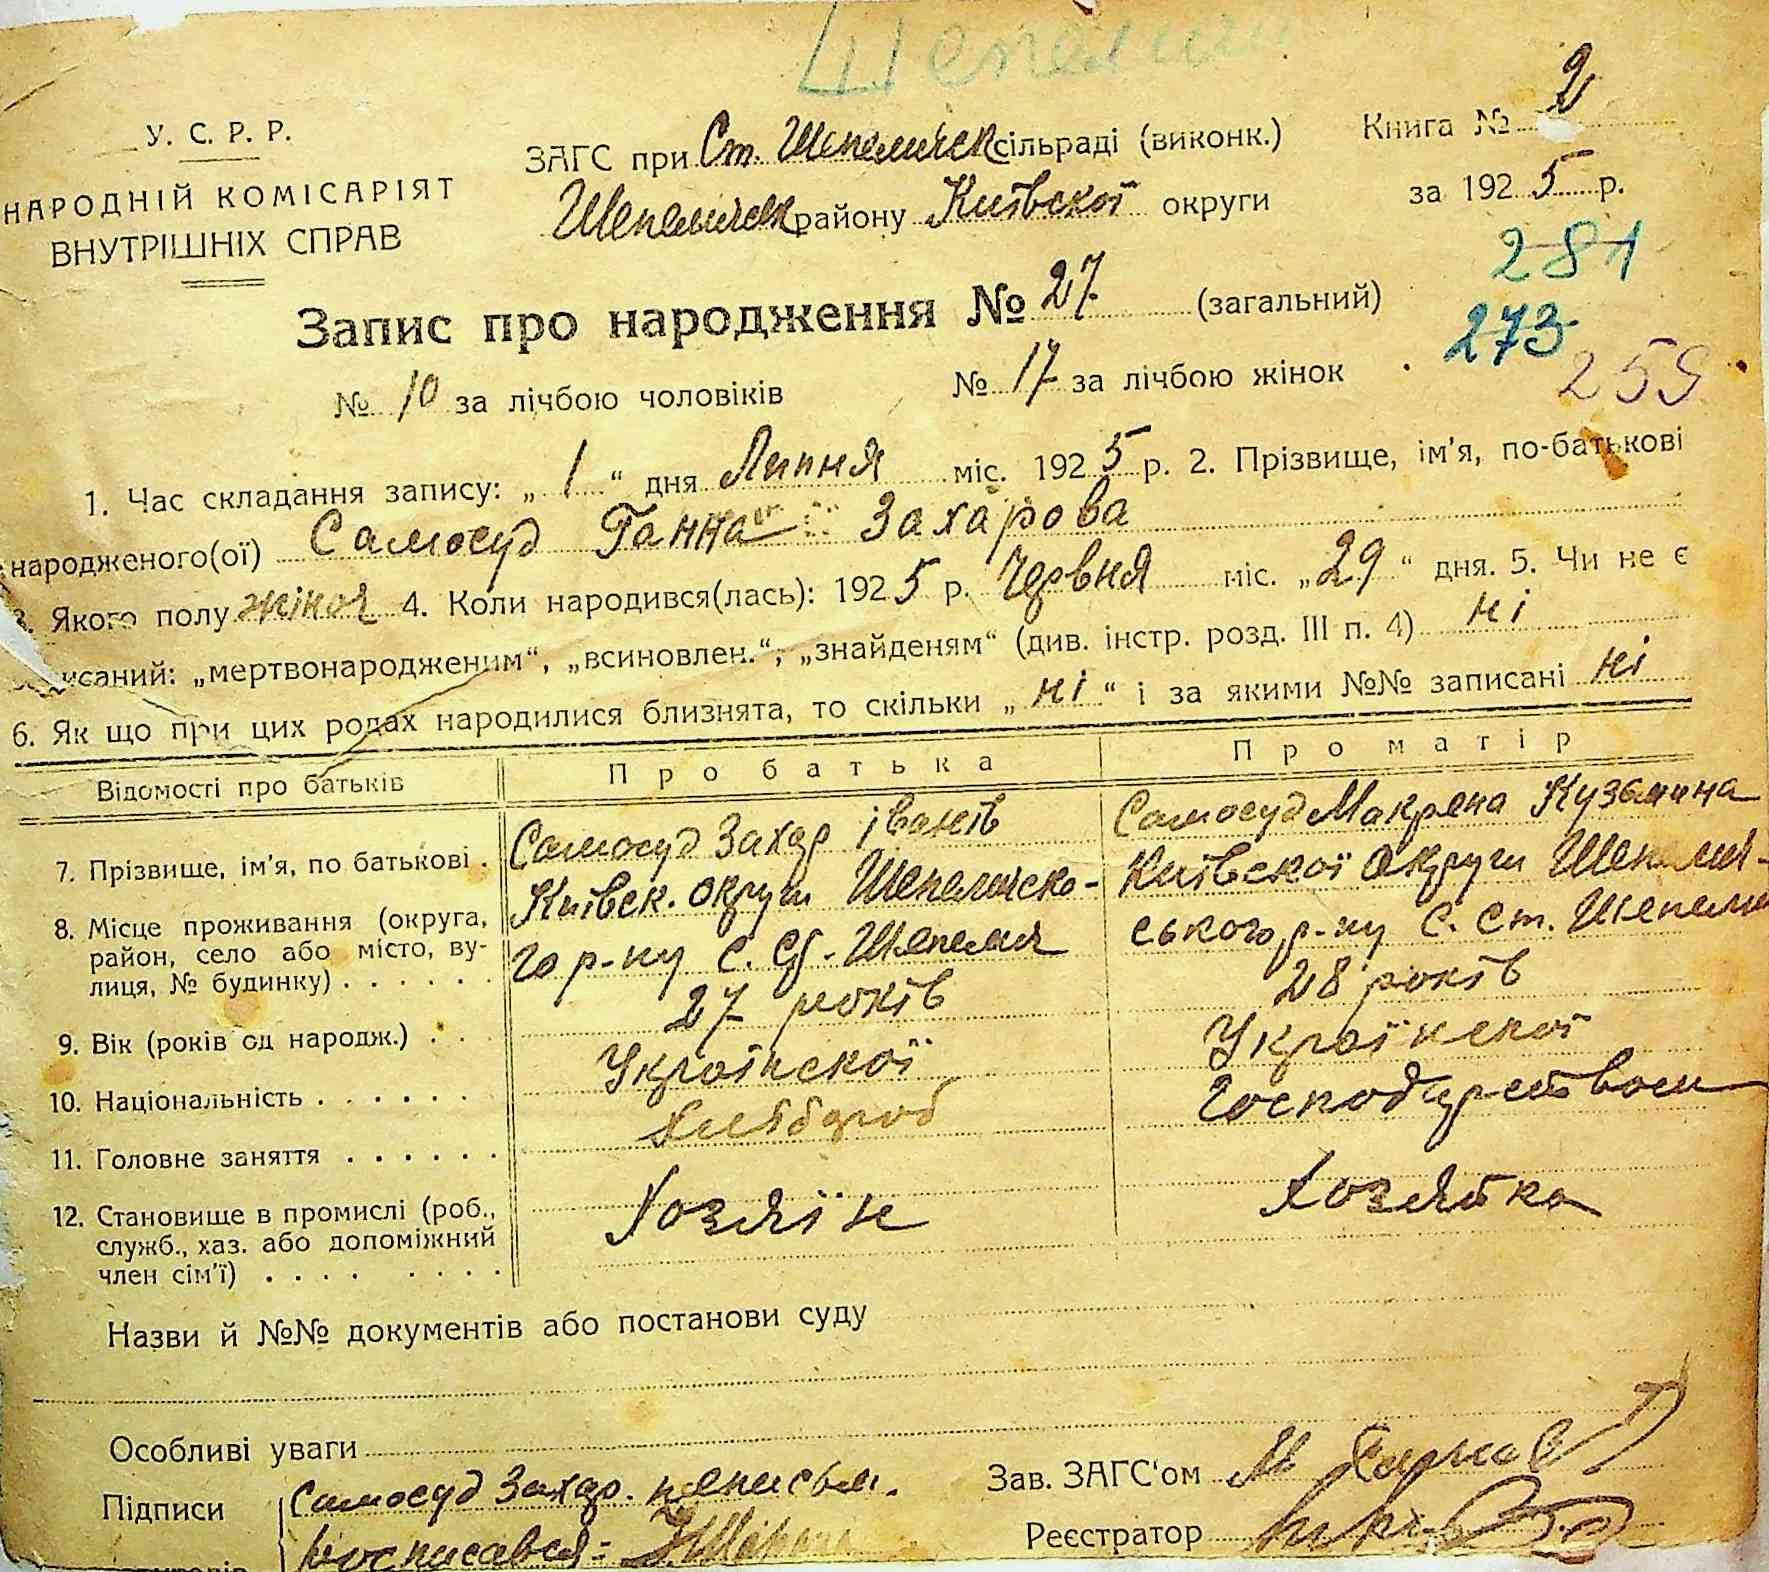 Шепеличи
У. С. Р. Р.
НАРОДНІЙ КОМІСАРІЯТ
ВНУТРІШНІХ СПРАВ
ЗАГС при Ст. Шепелическ сільраді (виконк.)
Шепелическ району Київскої округи
Книга № 2
за 1925 р.
281
273
259
Запис про народження № 27 (загальний)
№ 10 за лічбою чоловіків № 17 за лічбою жінок
1. Час складання запису: „ 1 “ дня Липня міс. 1925 р. 2. Прізвище, ім'я, по-батькові
народженого(ої) Самосуд Ганна Захарова
3. Якого полу жіноя 4. Коли народився(лась): 1925 р. Червня міс. „29“ дня. 5. Чи не є
писаний: „мертвонародженим“, „всиновлен.“, „знайденям“ (див. інстр. розд. III п. 4) ні
6. Як що при цих родах народилися близнята, то скільки „ ні “ і за якими №№ записані ні
Відомості про батьків Про батька Про матір
7. Прізвище, ім'я, по батькові . Самосуд Захар Іванів Самосуд Макрена Кузьмина
8. Місце проживання (округа, район, село або місто, вулиця, № будинку) . . . . . . Київск. округи Шепелическо-
го р-ну с. Ст. Шепеля Київскої Округи Шепели-
ського р-ну С. Ст. Шепели
9. Вік (років од народж.) . . . 27 років 28 років
10. Національність . . . . . . Українскої Українскої
11. Головне заняття . . . . . . Хлібороб Господурством
12. Становище в промислі (роб., служб., хаз. або допоміжний член сім'ї) . . . . . . . . Хозяїн Хозяйка
Назви й №№ документів або постанови суду
Особливі уваги
Підписи Самосуд Захар. неписьм.
росписався:
Зав. ЗАГС'ом М
Реєстратор